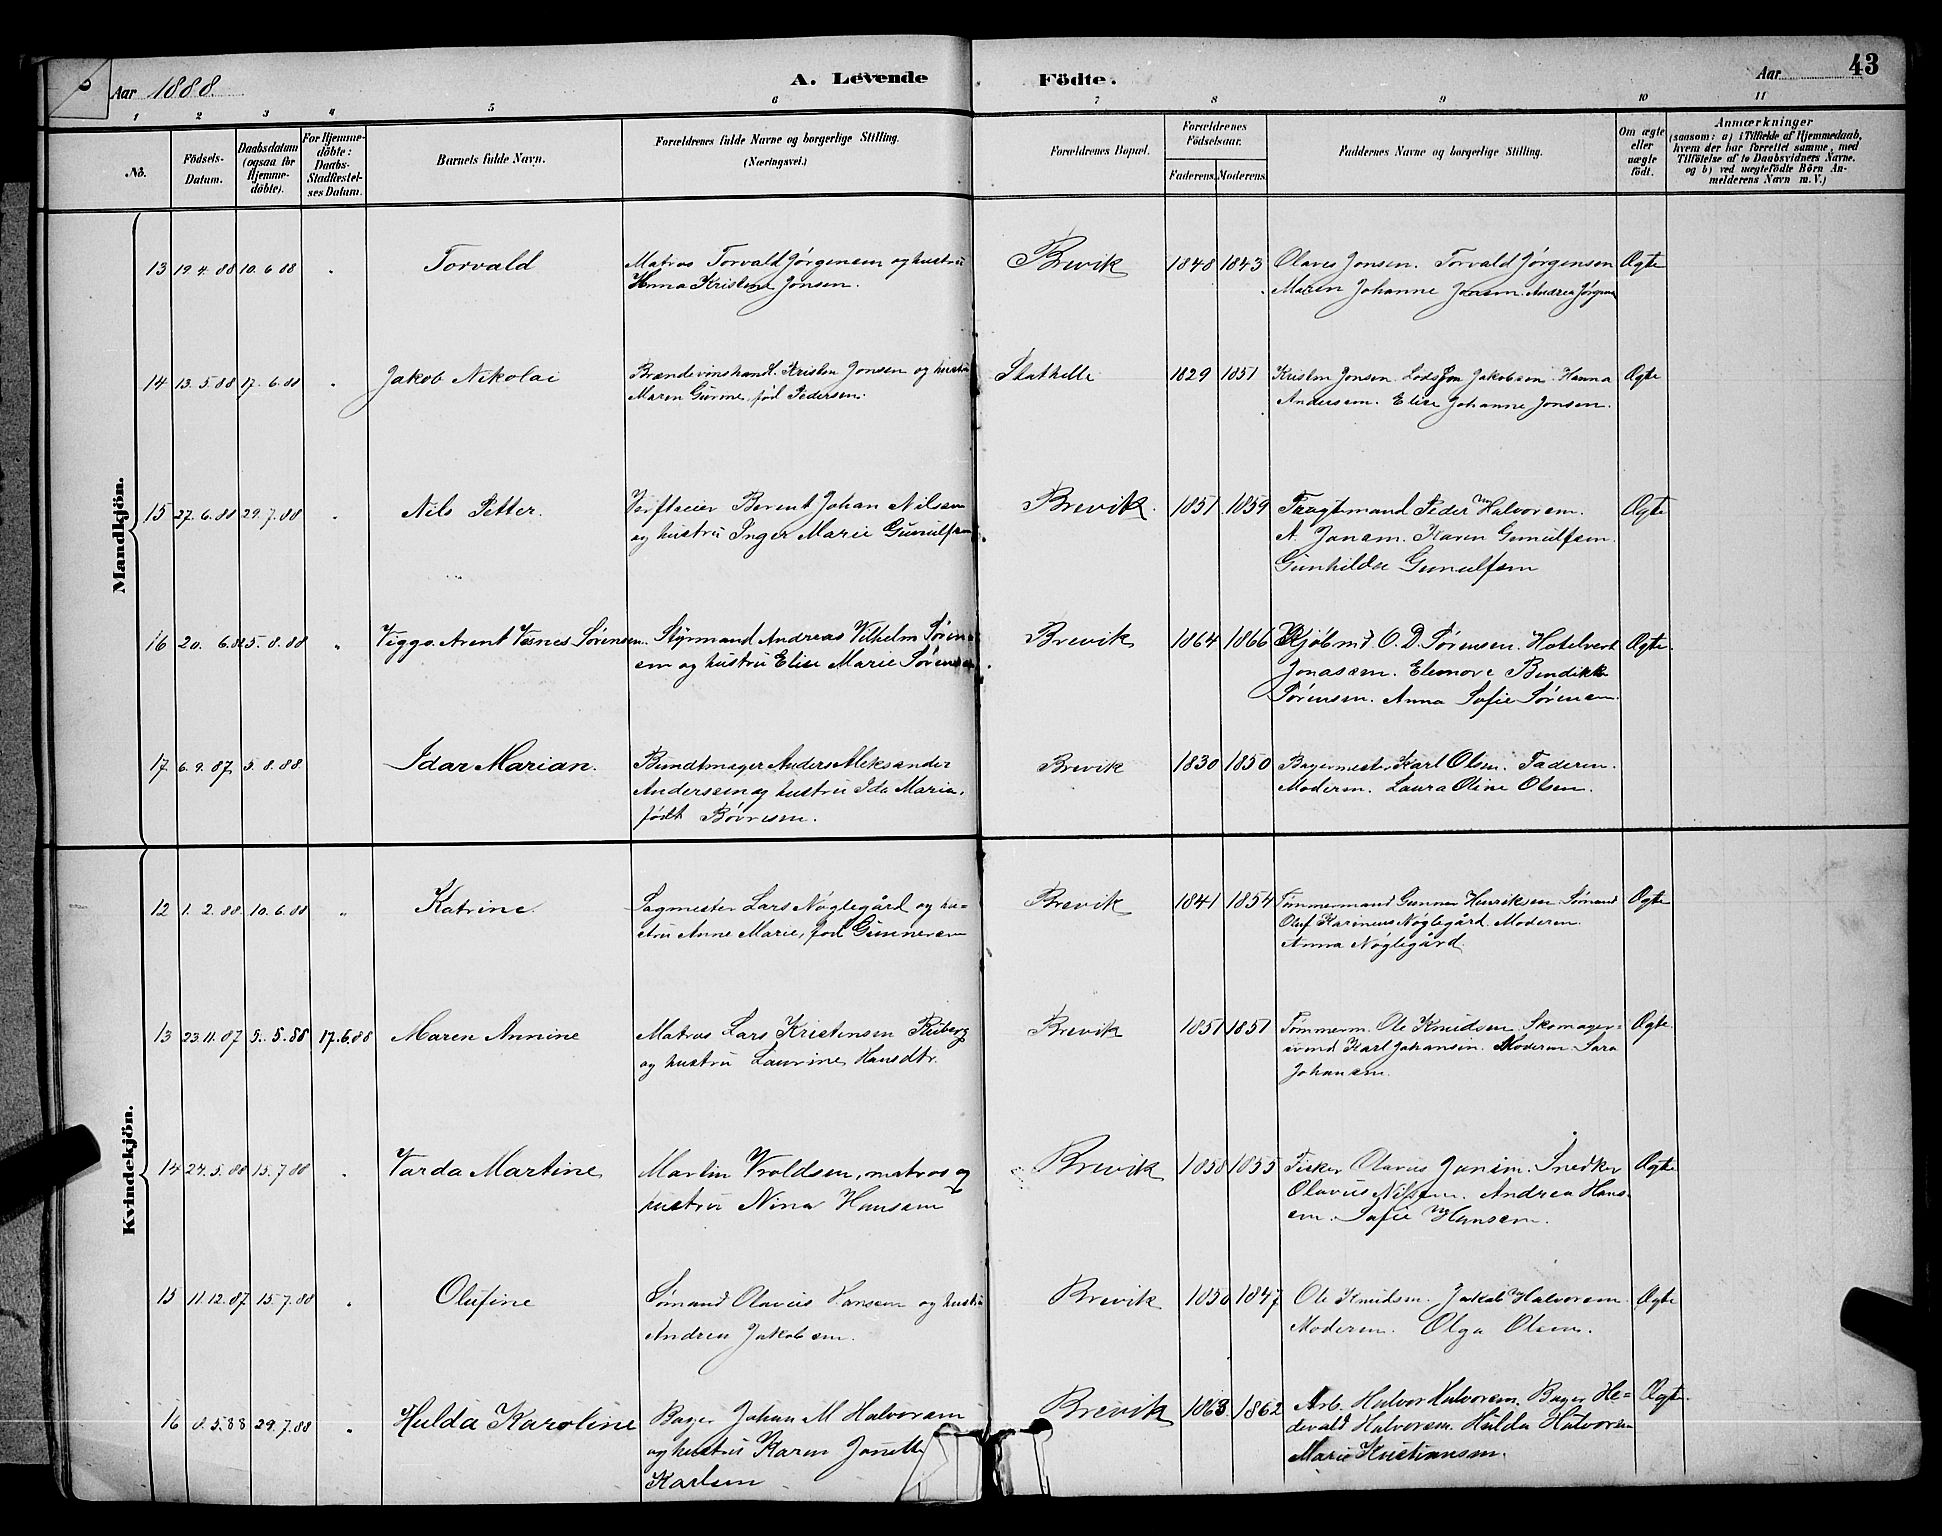 Aar 1888. A. Levende Födte. Aar 43
1 2 3 4 5 6 7 8 9 10 11
No.
Födsels-Datum.
Daabsdatum (ogsaa for Hjemmedöbte).
For Hjemmedöbte: Daabs-Stadfæstelses Datum.
Barnets fulde Navn.
Forældrenes fulde Navne og borgerlige Stilling. (Næringsvei.)
Forældrenes Bopæl.
Forældrenes Födselsaar.
Faderens. Moderens.
Faddernes Navne og borgerlige Stilling.
Om ægte eller uægte födt.
Anmærkninger
(saasom: a) i Tilfælde af Hjemmedaab,
hvem der har forrettet samme, med
Tilföielse af to Daabsvidners Navne.
og b) ved uægtefödte Börn An-
melderens Navn m. V.)
Mandkjön.
13 19.4.88 10.6.88 " Torvald
Matros Torvald Jörgensen og hustru
Kristen Jonsen.
Brevik 1848 1843
Olaves Jonsen. Torvald Jörgensen
Maren Johanne Jonsen. Andrea Jörgens
Ægte
14 13.5.88 17.6.88 " Jakob Nikolai
Brændevinshand. Kristen Jonsen og hustru
Maren Gurine, föd Pedersen.
Stathelle 1829 1851
Kristen Jonsen. Lods Jakobsen. Hanna
Andersen. Elise Johanne Jonsen.
Ægte
15 27.6.88 29.7.88 " Nils Petter.
Verfteier Berent Johan Nilsen
og hustru Inger Marie Gunulfsen
Brevik. 1851 1859
Fragtemand Peder Halvorsen.
A. Jonsen. Karen Gunulfsen.
Gunhilda Gunulfsen
Ægte
16 20.6.88 5.8.88 " Viggo Arent Vesnes Sörensen.
Styrmand Andreas Vilhelm Sören-
sen og hustru Elise Marie Sörensen
Brevik 1864 1866
Kjöbmd. O. D. Sörensen. Hotelvert
Jonassen. Eleonore Bendikte
Sörensen. Anna Sofie Sörensen.
Ægte.
17. 6.9.87. 5.8.88 Idar Marian.
Bundtmager Anders Aleksander
Andersen og hustru Ida Maria,
födt Bövresen.
Brevik 1830 1850
Bagermester Karl Olsen. Faderen.
Moderen. Laura Oline Olsen.
Kvindekjön.
12 1.2.88. 10.6.88 " Katrine.
Sagmester Lars Nöglegård og hu-
stru Anne Marie, föd Gunnersen
Brevik 1841 1854
Tömmermand Gunner Henriksen Sömand
Oluf Karinius Nöglegård. Moderen.
Anna Nöglegård.
Ægte
13 23.11.87 5.5.88 17.6.88 Maren Annine
Matros Lars Kristensen Riiberg
og hustru Laurine Hansdtr.
Brevik 1851 1851
Tömmerm. Ole Knudsen. Skomager-
svend Karl Johansen. Moderen. Sara
Johansen.
Ægte
14 24.5.88 15.7.88 " Varda Martine
Martin Vroldsen, matros og
hustru Nina Hansen
Brevik 1858 1855
Fisker Olavus Jansen. Snedker
Olavus Nilsen. Andrea Hans-
en. Sofie Hansen.
Ægte
15 11.12.87 15.7.88 " Olufine
Sömand Olavus Hansen og hustru
Andrea Jakobsen.
Brevik 1850 1847
Ole Knudsen. Jakob Halvorsen.
Moderen. Olga Olsen.
Ægte
16 8.5.88 29.7.88 " Hulda Karoline
Bager Johan M Halvorsen
og hustru Karen Jonette
Karlsen
Brevik 1863 1862
Arb. Halvor Halvorsen. Bager He-
devald Halvorsen. Hulda Halvorsen
Marie Kristiansen.
Ægte.